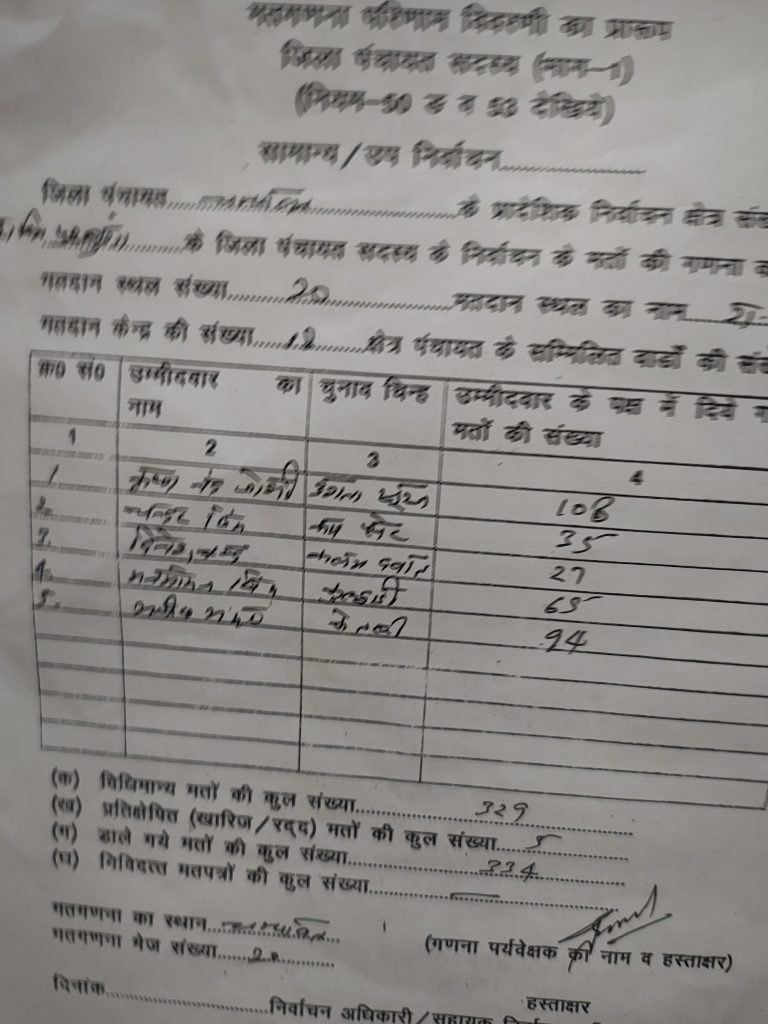 मतगणना परिणाम विवरणी का प्रारूप
जिला पंचायत सदस्य (भाग-1)
(नियम-50 ड व 53 देखिये)
सामान्य/उप निर्वाचन
जिला पंचायत चम्पावत के प्रादेशिक निर्वाचन क्षेत्र
के जिला पंचायत सदस्य के निर्वाचन के मतों की गणना
मतदान स्थल संख्या 20 मतदान स्थल का नाम
मतदान केन्द्र की संख्या 12 क्षेत्र पंचायत के सम्मिलित वार्डों की
क्र0 सं0 उम्मीदवार का चुनाव चिन्ह उम्मीदवार के पक्ष में दिये
नाम मतों की संख्या
1 2 3 4
1. जोशी उगता सूरज 108
2. सिंह कप प्लेट 35
3. कलम दवात 27
4. सिंह कुल्हाड़ी 65
5. केतली 94
(क) विधिमान्य मतों की कुल संख्या 329
(ख) प्रतिक्षेपित (खारिज/रद्द) मतों की कुल संख्या 5
(ग) डाले गये मतों की कुल संख्या 334
(घ) निविदत्त मतपत्रों की कुल संख्या —
मतगणना का स्थान चम्पावत
(गणना पर्यवेक्षक की नाम व हस्ताक्षर)
मतगणना मेज संख्या 20
हस्ताक्षर
दिनांक निर्वाचन अधिकारी/सहायक